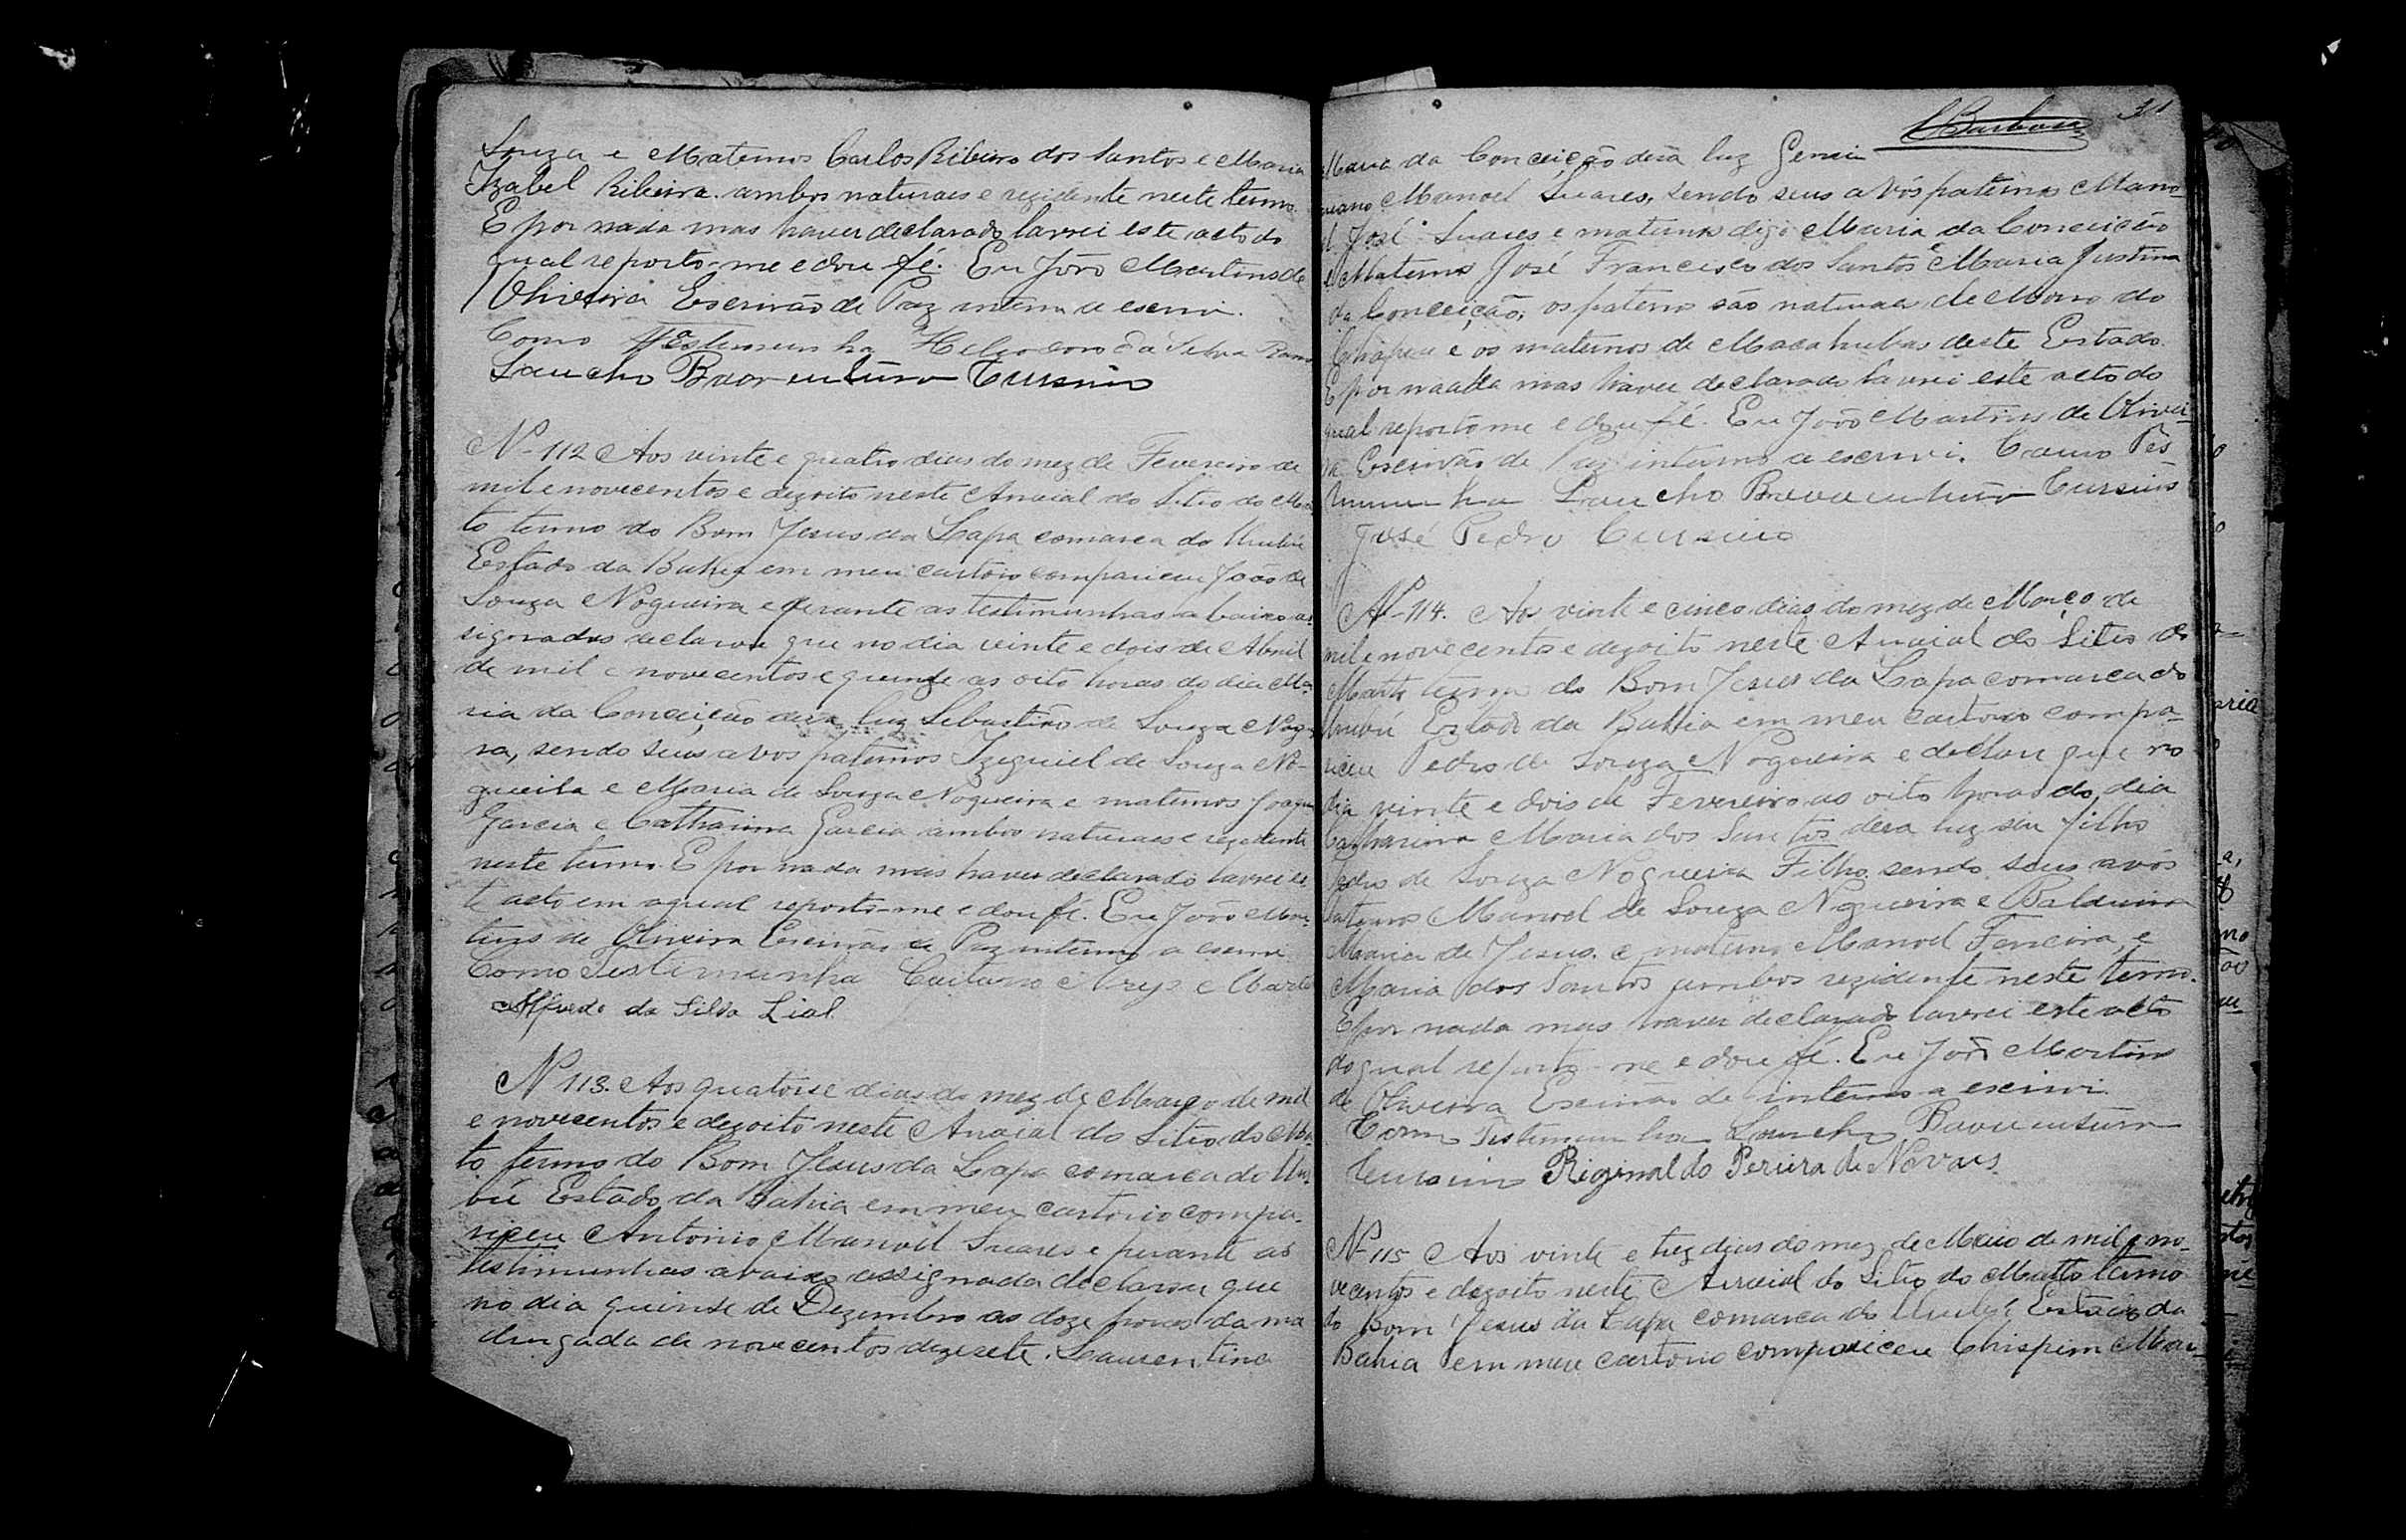 Souza e Maternos Carlos Ribeiro dos Santos e Maria
Izabel Ribeira. ambos naturaes e rezidente neste termo.
E por nada mas haver declarado lavrei este acto do
qual reporto-me e dou fé. Eu João Martins de
Oliveira Escrivão de Paz interino a escrevi.
Como Testemunha Heliodoro da Silva Ramos
Sancho Buaventura Cursino
Nº 112 Aos vinte e quatro dias do mez de Fevereiro de
mil e novecentos e dezoito neste Arraial do Sitio do Mat
to termo do Bom Jesus da Lapa comarca do Urubú
Estado da Bahia em meu cartorio compariceu João de
Souza Nogueira e perante as testimunhas a baixo as
signados declarou que no dia vinte e dois de Abril
de mil e novecentos e quinze as oito horas do dia Ma-
ria da Conceição dera luz Sebastião de Souza Nog
ra, sendo seus avos paternos Izequiel de Souza No-
gueila e Maria de Souza Nogueira e maternos Joaquim
Garcia e Catharina Garcia ambos naturaes e rezidente
neste termo. E por nada mas haver declarado lavrei es
te acto em aqual reporto-me e dou fé. Eu João Mar-
tins de Oliveira Escrivão de Paz interino a escrevi
Como Testimunha Caitano Alves Mart
Alfredo da Silva Lial
Nº 113. Aos quatorse dias do mez de Março de mil
e novecentos e dezoito neste Arraial do Sitio do Mat-
to termo do Bom Jesus da Lapa comarca do Uru-
bú Estado da Bahia em meu cartorio compa-
riceu Antonio Manoel Suares e perante as
testimunhas abaixo assignada declarou que
no dia quinse de Dezembro as doze horas da ma
drugada de novecentos dezesete. Laurentina
31
Barbosa
Maria da Conceição dera luz Germi
niano Manoel Suares, sendo seus avós paternos Mano-
el José Suares e maternos digo Maria da Conceição
e Maternos José Francisco dos Santos e Maria Justina
da Conceição, os paterno são naturaes de Morro do
Chapeu e os maternos de Macahubas deste Estado.
E por naada mas haver declarado lavrei este acto do
qual reporto me e dou fé. Eu João Martins de Olivei-
ra Escrivão de Paz interino a escrevi. Como Tes
timunha Sancho Buaventura Cursino
José Pedro Cursino
Nº 114. Aos vinte e cinco dias do mez de Março de
mil e novecentos e dezoito neste Arraial do Sitio do
Matto termo do Bom Jesus da Lapa comarca do
Urubú Estado da Bahia em meu cartorio compa-
riceu Pedro de Souza Nogueira e declarou que no
dia vinte e dois de Fevereiro as oito horas do dia
Catharina Maria dos Santos dera luz seu filho
Pedro de Souza Nogueira Filho. sendo seus avós
paternos Manoel de Souza Nogueira e Balduina
Maria de Jesus. e materno Manoel Ferreira, e
Maria dos Santos ambos rezidente neste termo.
E por nada mas haver declarado lavrei este acto
do qual reporto-me e dou fé. Eu João Martins
de Oliveira Escrivão de interino a escrevi.
Como Testemunha Sancho Buaventura
Cursino Riginaldo Pereira de Novaes
Nº 115 Aos vinte e trez dias do mez de Maio de mil e no-
vecentos e dezoito neste Arraial do Sitio do Matto termo
do Bom Jesus da Lapa comarca do Urubú Estado da
Bahia em meu cartorio compariceu Chispim Mar-